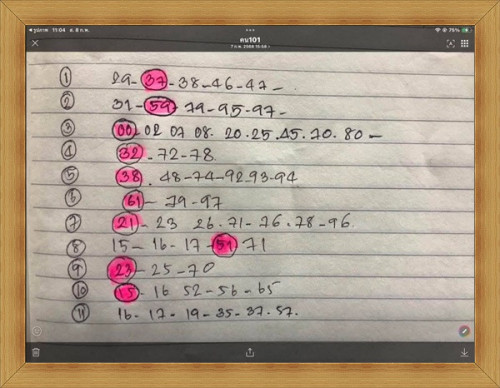 รูปภาพ 11:04 อ. 8 ก.พ. 75%
คน101
7 ก.พ. 2566 15:58 น.
1 29-37-38-46-47-
2 31-59-79-95-97-
3 00-02 07 08. 20.25.45.70.80-
4 32-72-78.
5 38. 48-74-92-93-94
6 61-79-97
7 21-23 26.71-76.78-96.
8 15-16-17-51-71
9 23-25-70
10 15-16 52-56-65
11 16-17-19-35-37.57.